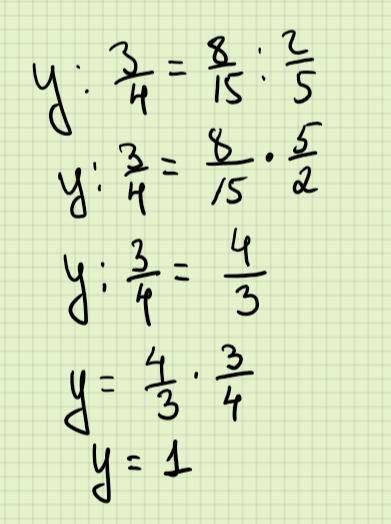 y : 3/4 = 8/15 : 2/5
y : 3/4 = 8/15 · 5/2
y : 3/4 = 4/3
y = 4/3 · 3/4
y = 1